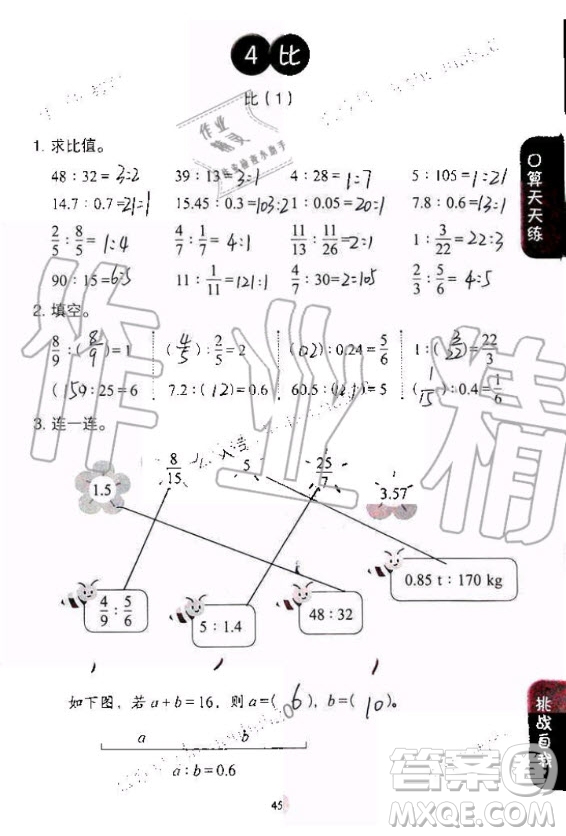 4 比
比（1）
1. 求比值。
48 : 32 = 3:2  39 : 13 = 3:1  4 : 28 = 1:7  5 : 105 = 1:21
14.7 : 0.7 = 21=1  15.45 : 0.3 = 103:2  1 : 0.05 = 20:1  7.8 : 0.6 = 13:1
2/5 : 8/5 = 1:4  4/7 : 1/7 = 4:1  11/13 : 11/26 = 2:1  1 : 3/22 = 22:3
90 : 15 = 6:5  11 : 1/11 = 121:1  4/7 : 30 = 2:105  2/3 : 5/6 = 4:5
2. 填空。
8/9 : (8/9) = 1  (4/5) : 2/5 = 2  (0.2) : 0.24 = 5/6  1 : (3/22) = 22/3
(150) : 25 = 6  7.2 : (12) = 0.6  60.5 : (12.1) = 5  (1/15) : 0.4 = 1/6
3. 连一连。
1.5  8/15  5  25/7  3.57
4/9 : 5/6  5 : 1.4  48 : 32  0.85 t : 170 kg
如下图，若 a + b = 16，则 a = ( 6 )，b = ( 10 )。
a  b
a : b = 0.6
45
口算天天练
挑战自我
作业精
答案圈
MXQE.COM